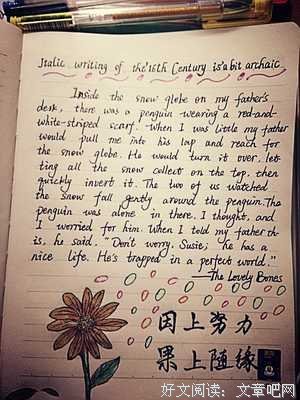 Italic writing of the 16th Century is a bit archaic
Inside the snow globe on my father's
desk, there was a penguin wearing a red-and-
white-striped scarf. When I was little my father
would pull me into his lap and reach for
the snow globe. He would turn it over, let-
ting all the snow collect on the top, then
quickly invert it. The two of us watched
the snow fall gently around the penguin. The
penguin was alone in there, I thought, and
I worried for him. When I told my father th-
is, he said, "Don't worry, Susie; he has a
nice life. He's trapped in a perfect world."
—The Lovely Bones
因上努力
果上随缘
好文阅读：文章吧网